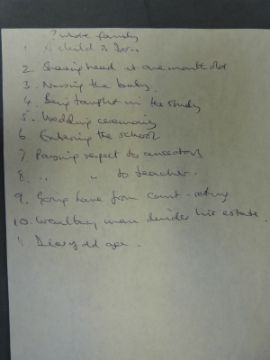 whole family
1. A child is Born
2. Shaving head at one month old
3. Nursing the baby.
4. Being taught in the study
5. Wedding ceremony
6 Entering the school
7. Paying respect to ancestors
8. " " to teacher.
9. Going home from court -
10. Wealthy man divides his estate.
11. old age.